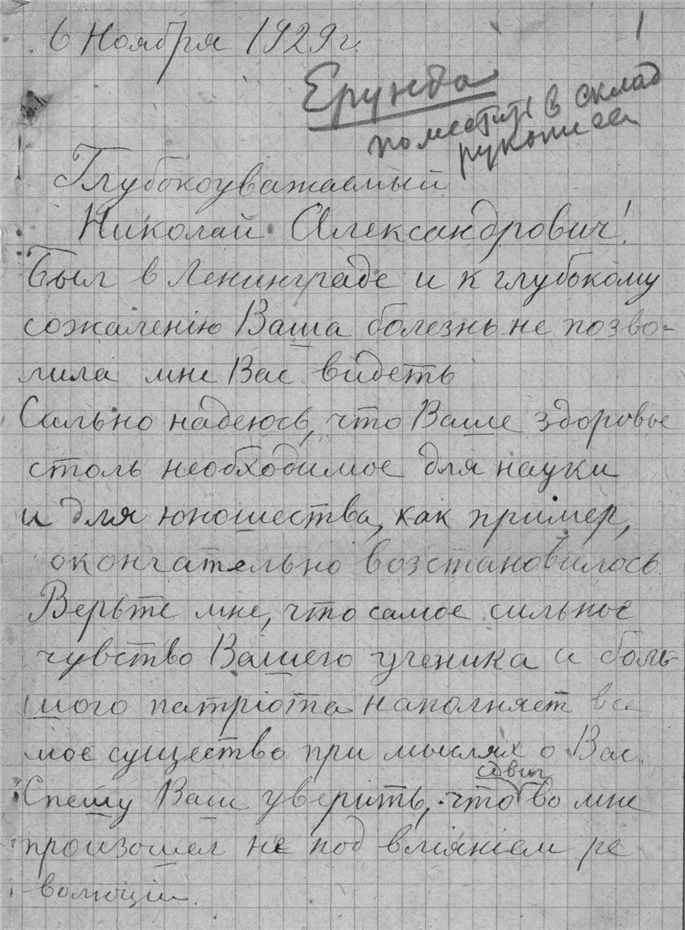 6 Ноября 1929г.
1
Ерунда
поместить в склад
рукописей
Глубокоуважаемый
Николай Александрович!
Был в Ленинграде и к глубокому
сожаленію Ваша болезнь не позво-
лила мне Вас видеть
Сильно надеюсь, что Ваше здоровье
столь необходимое для науки
и для юношества, как пример,
окончательно возстановилось.
Верьте мне, что самое сильное
чувство Вашего ученика и боль-
шого патріота наполняет все
мое существо при мыслях о Вас.
сдвиг
Спешу Вам уверить, что во мне
произошел не под вліянием ре
волюціи.